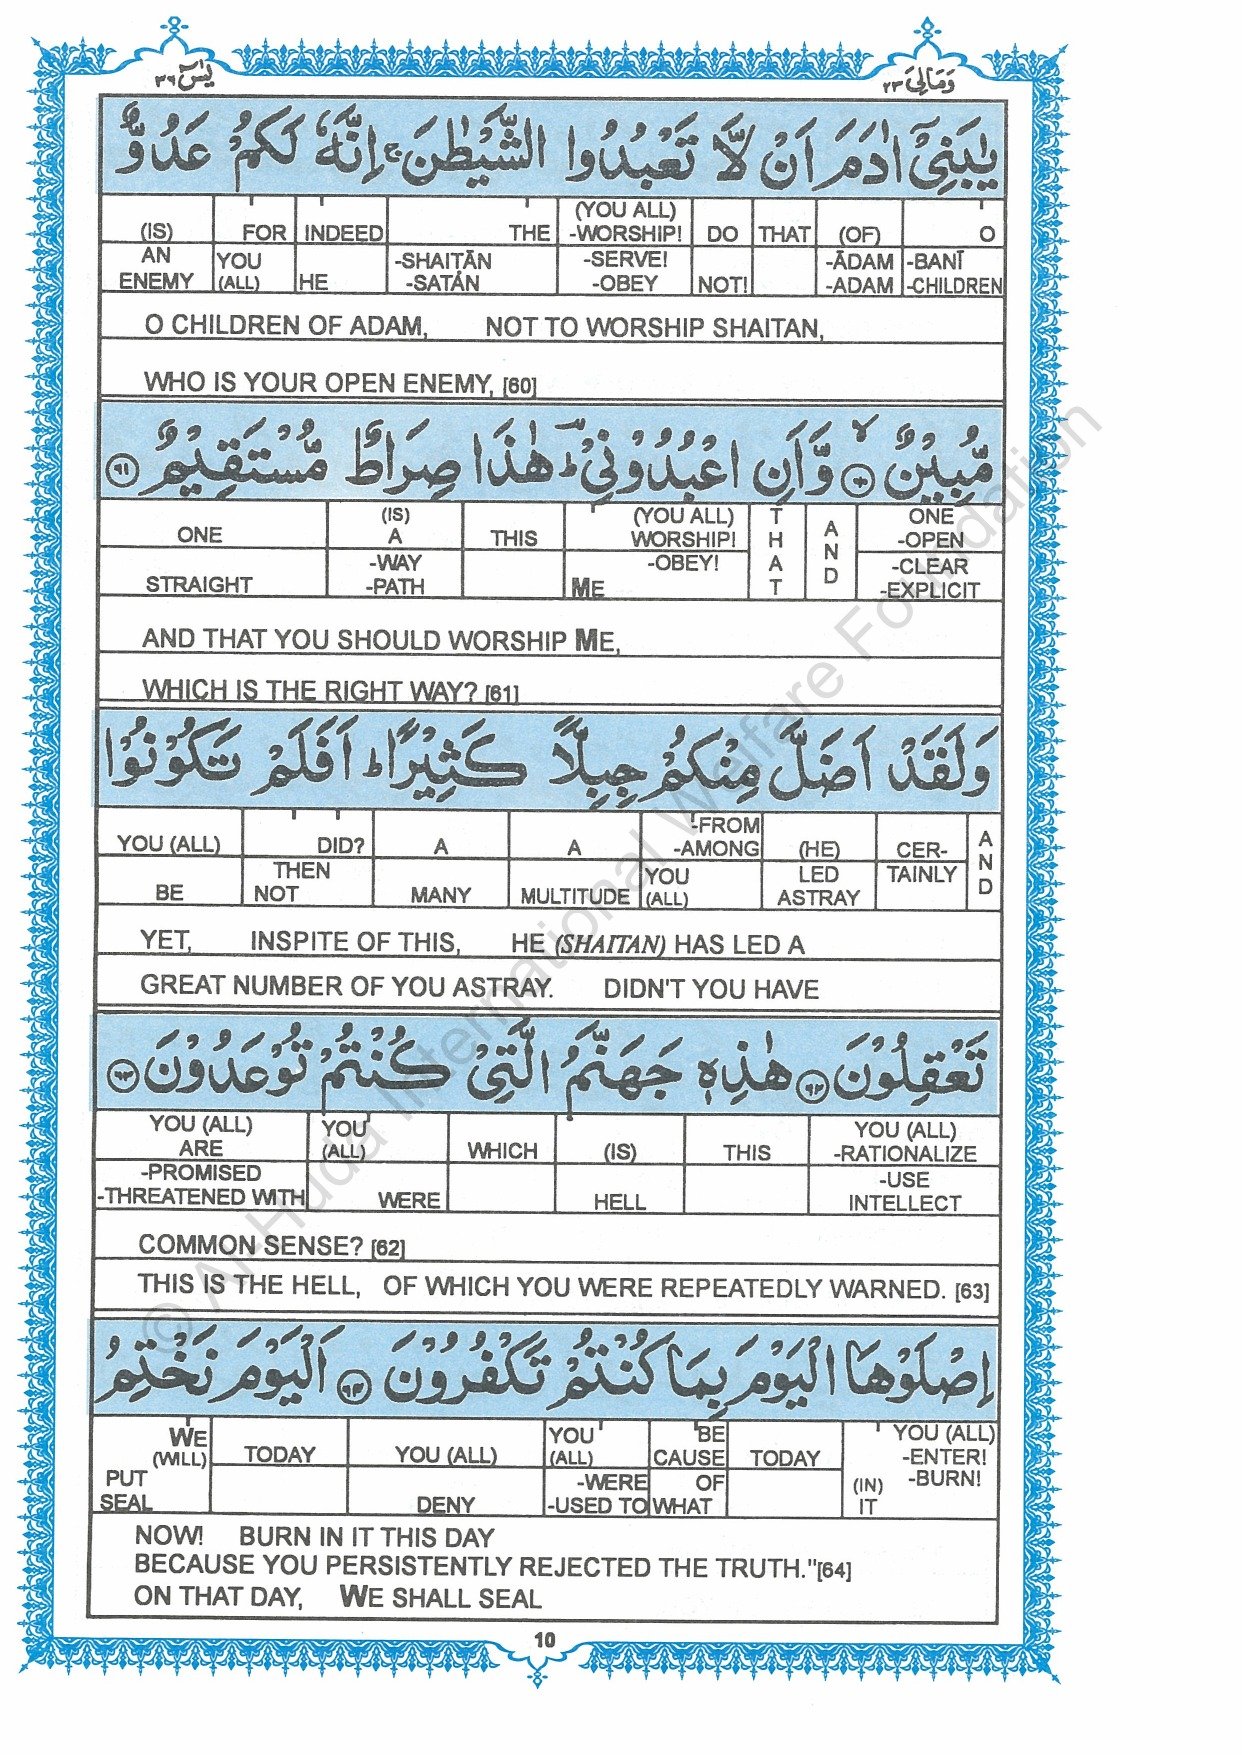 يٰسٓ ٣٦
وَمَالِيَ ٢٣
يٰبَنِيْٓ اٰدَمَ اَنْ لَّا تَعْبُدُوا الشَّيْطٰنَ ۚ اِنَّهٗ لَكُمْ عَدُوٌّ
(IS) AN ENEMY
FOR YOU (ALL)
INDEED HE
THE -SHAITĀN -SATÁN
(YOU ALL) -WORSHIP! -SERVE! -OBEY
DO NOT!
THAT
(OF) -ĀDAM -ADAM
O -BANĪ -CHILDREN
O CHILDREN OF ADAM, NOT TO WORSHIP SHAITAN,
WHO IS YOUR OPEN ENEMY, [60]
مُّبِيْنٌ ۙ ٦٠ وَّاَنِ اعْبُدُوْنِيْ ؕ هٰذَا صِرَاطٌ مُّسْتَقِيْمٌ ٦١
ONE STRAIGHT
(IS) A -WAY -PATH
THIS
(YOU ALL) WORSHIP! -OBEY! ME
THAT
AND
ONE -OPEN -CLEAR -EXPLICIT
AND THAT YOU SHOULD WORSHIP ME,
WHICH IS THE RIGHT WAY? [61]
وَلَقَدْ اَضَلَّ مِنْكُمْ جِبِلًّا كَثِيْرًا ؕ اَفَلَمْ تَكُوْنُوْا
YOU (ALL) BE
DID? THEN NOT
A MANY
A MULTITUDE
-FROM -AMONG YOU (ALL)
(HE) LED ASTRAY
CER- TAINLY
AND
YET, INSPITE OF THIS, HE (SHAITAN) HAS LED A
GREAT NUMBER OF YOU ASTRAY. DIDN'T YOU HAVE
تَعْقِلُوْنَ ٦٢ هٰذِهٖ جَهَنَّمُ الَّتِيْ كُنْتُمْ تُوْعَدُوْنَ ٦٣
YOU (ALL) ARE -PROMISED -THREATENED WITH
YOU (ALL) WERE
WHICH
(IS) HELL
THIS
YOU (ALL) -RATIONALIZE -USE INTELLECT
COMMON SENSE? [62]
THIS IS THE HELL, OF WHICH YOU WERE REPEATEDLY WARNED. [63]
اِصْلَوْهَا الْيَوْمَ بِمَا كُنْتُمْ تَكْفُرُوْنَ ٦٤ اَلْيَوْمَ نَخْتِمُ
WE (WILL) PUT SEAL
TODAY
YOU (ALL) DENY
YOU (ALL) -WERE -USED TO
BE CAUSE OF WHAT
TODAY
YOU (ALL) -ENTER! -BURN! (IN) IT
NOW! BURN IN IT THIS DAY
BECAUSE YOU PERSISTENTLY REJECTED THE TRUTH."[64]
ON THAT DAY, WE SHALL SEAL
10
© Al-Huda International Welfare Foundation